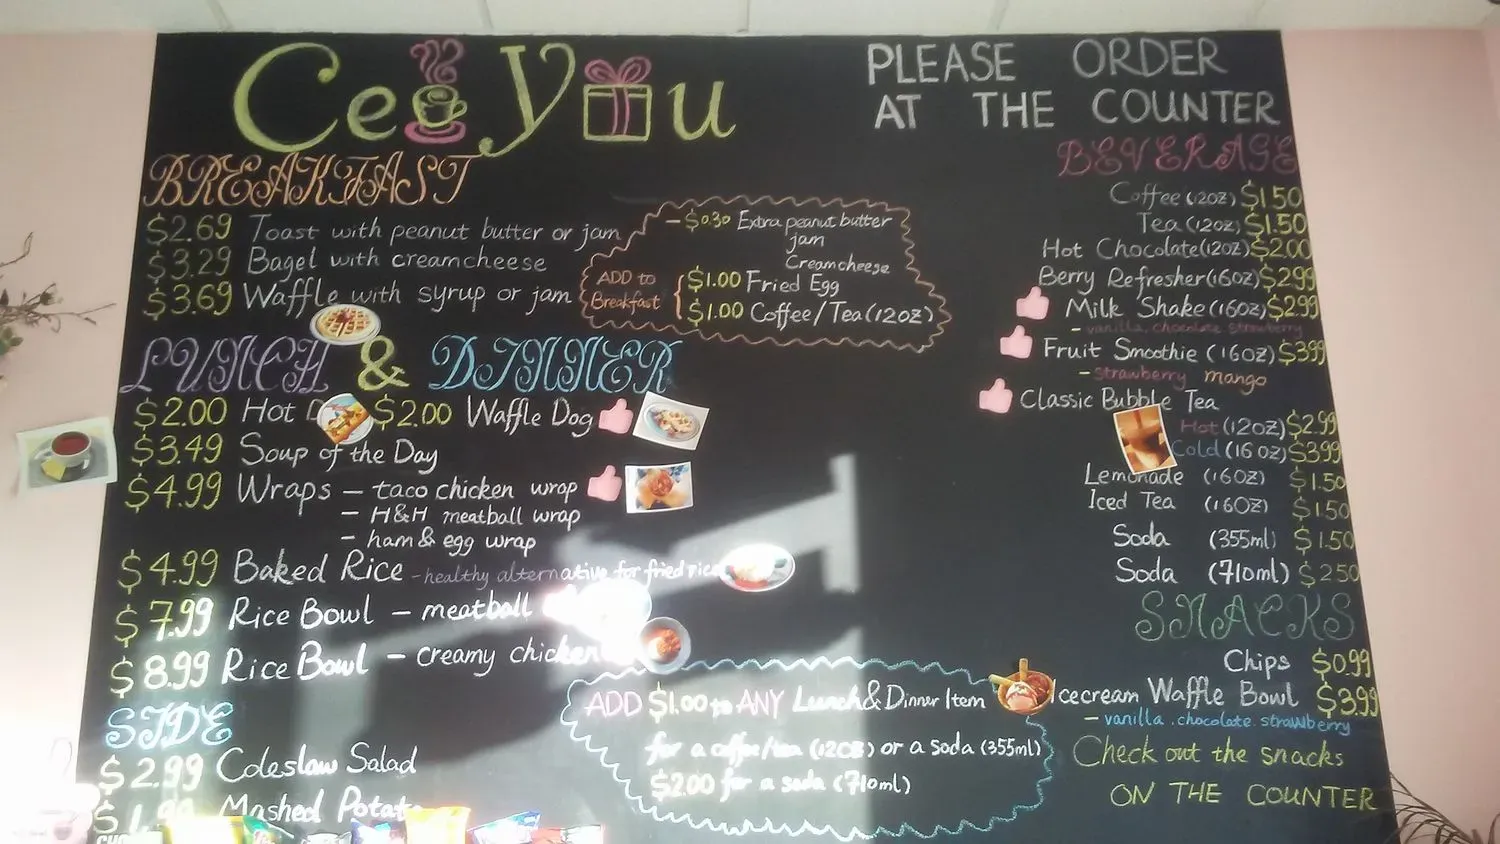 Ceo You
PLEASE ORDER
AT THE COUNTER
BREAKFAST
$2.69 Toast with peanut butter or jam
$3.29 Bagel with creamcheese
$3.69 Waffle with syrup or jam
ADD to
Breakfast
- $0.30 Extra peanut butter
jam
Creamcheese
$1.00 Fried Egg
$1.00 Coffee/Tea (12oz)
LUNCH & DINNER
$2.00 Hot $2.00 Waffle Dog
$3.49 Soup of the Day
$4.99 Wraps - taco chicken wrap
- H&H meatball wrap
- ham & egg wrap
$4.99 Baked Rice - healthy alternative for fried rice
$7.99 Rice Bowl - meatball
$8.99 Rice Bowl - creamy chicken
SIDE
$2.99 Coleslaw Salad
$1.99 Mashed Potato
ADD $1.00 to ANY Lunch & Dinner Item
for a coffee/tea (12oz) or a soda (355ml)
$2.00 for a soda (710ml)
BEVERAGE
Coffee (12oz) $1.50
Tea (12oz) $1.50
Hot Chocolate (12oz) $2.00
Berry Refresher (16oz) $2.99
Milk Shake (16oz) $2.99
- vanilla, chocolate, strawberry
Fruit Smoothie (16oz) $3.99
- strawberry mango
Classic Bubble Tea
Hot (12oz) $2.99
Cold (16oz) $3.99
Lemonade (16oz) $1.50
Iced Tea (16oz) $1.50
Soda (355ml) $1.50
Soda (710ml) $2.50
SNACKS
Chips $0.99
Icecream Waffle Bowl $3.99
- vanilla, chocolate, strawberry
Check out the snacks
ON THE COUNTER